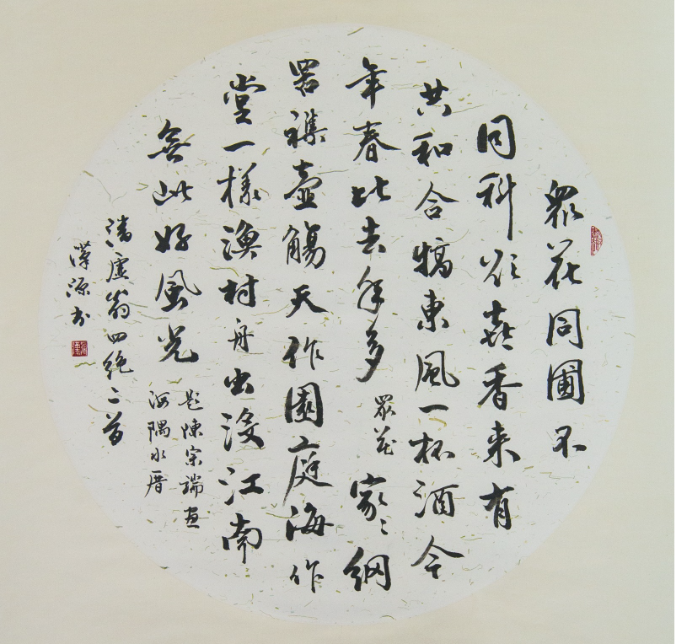 眾花同圃不
同科欣喜香来有
共和合犒東風一杯酒今
年春比去年多 眾花 家〻網
罟襍壺觴天作園庭海作
堂一樣漁村舟出没江南
無此好風光 题陳宗瑞画
海隅水厝
潘虚翁四絶二首
漢源书